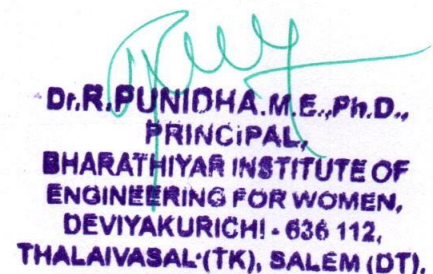 Dr.R.PUNIDHA.M.E.,Ph.D.,
PRINCIPAL,
BHARATHIYAR INSTITUTE OF
ENGINEERING FOR WOMEN,
DEVIYAKURICHI - 636 112,
THALAIVASAL (TK), SALEM (DT).